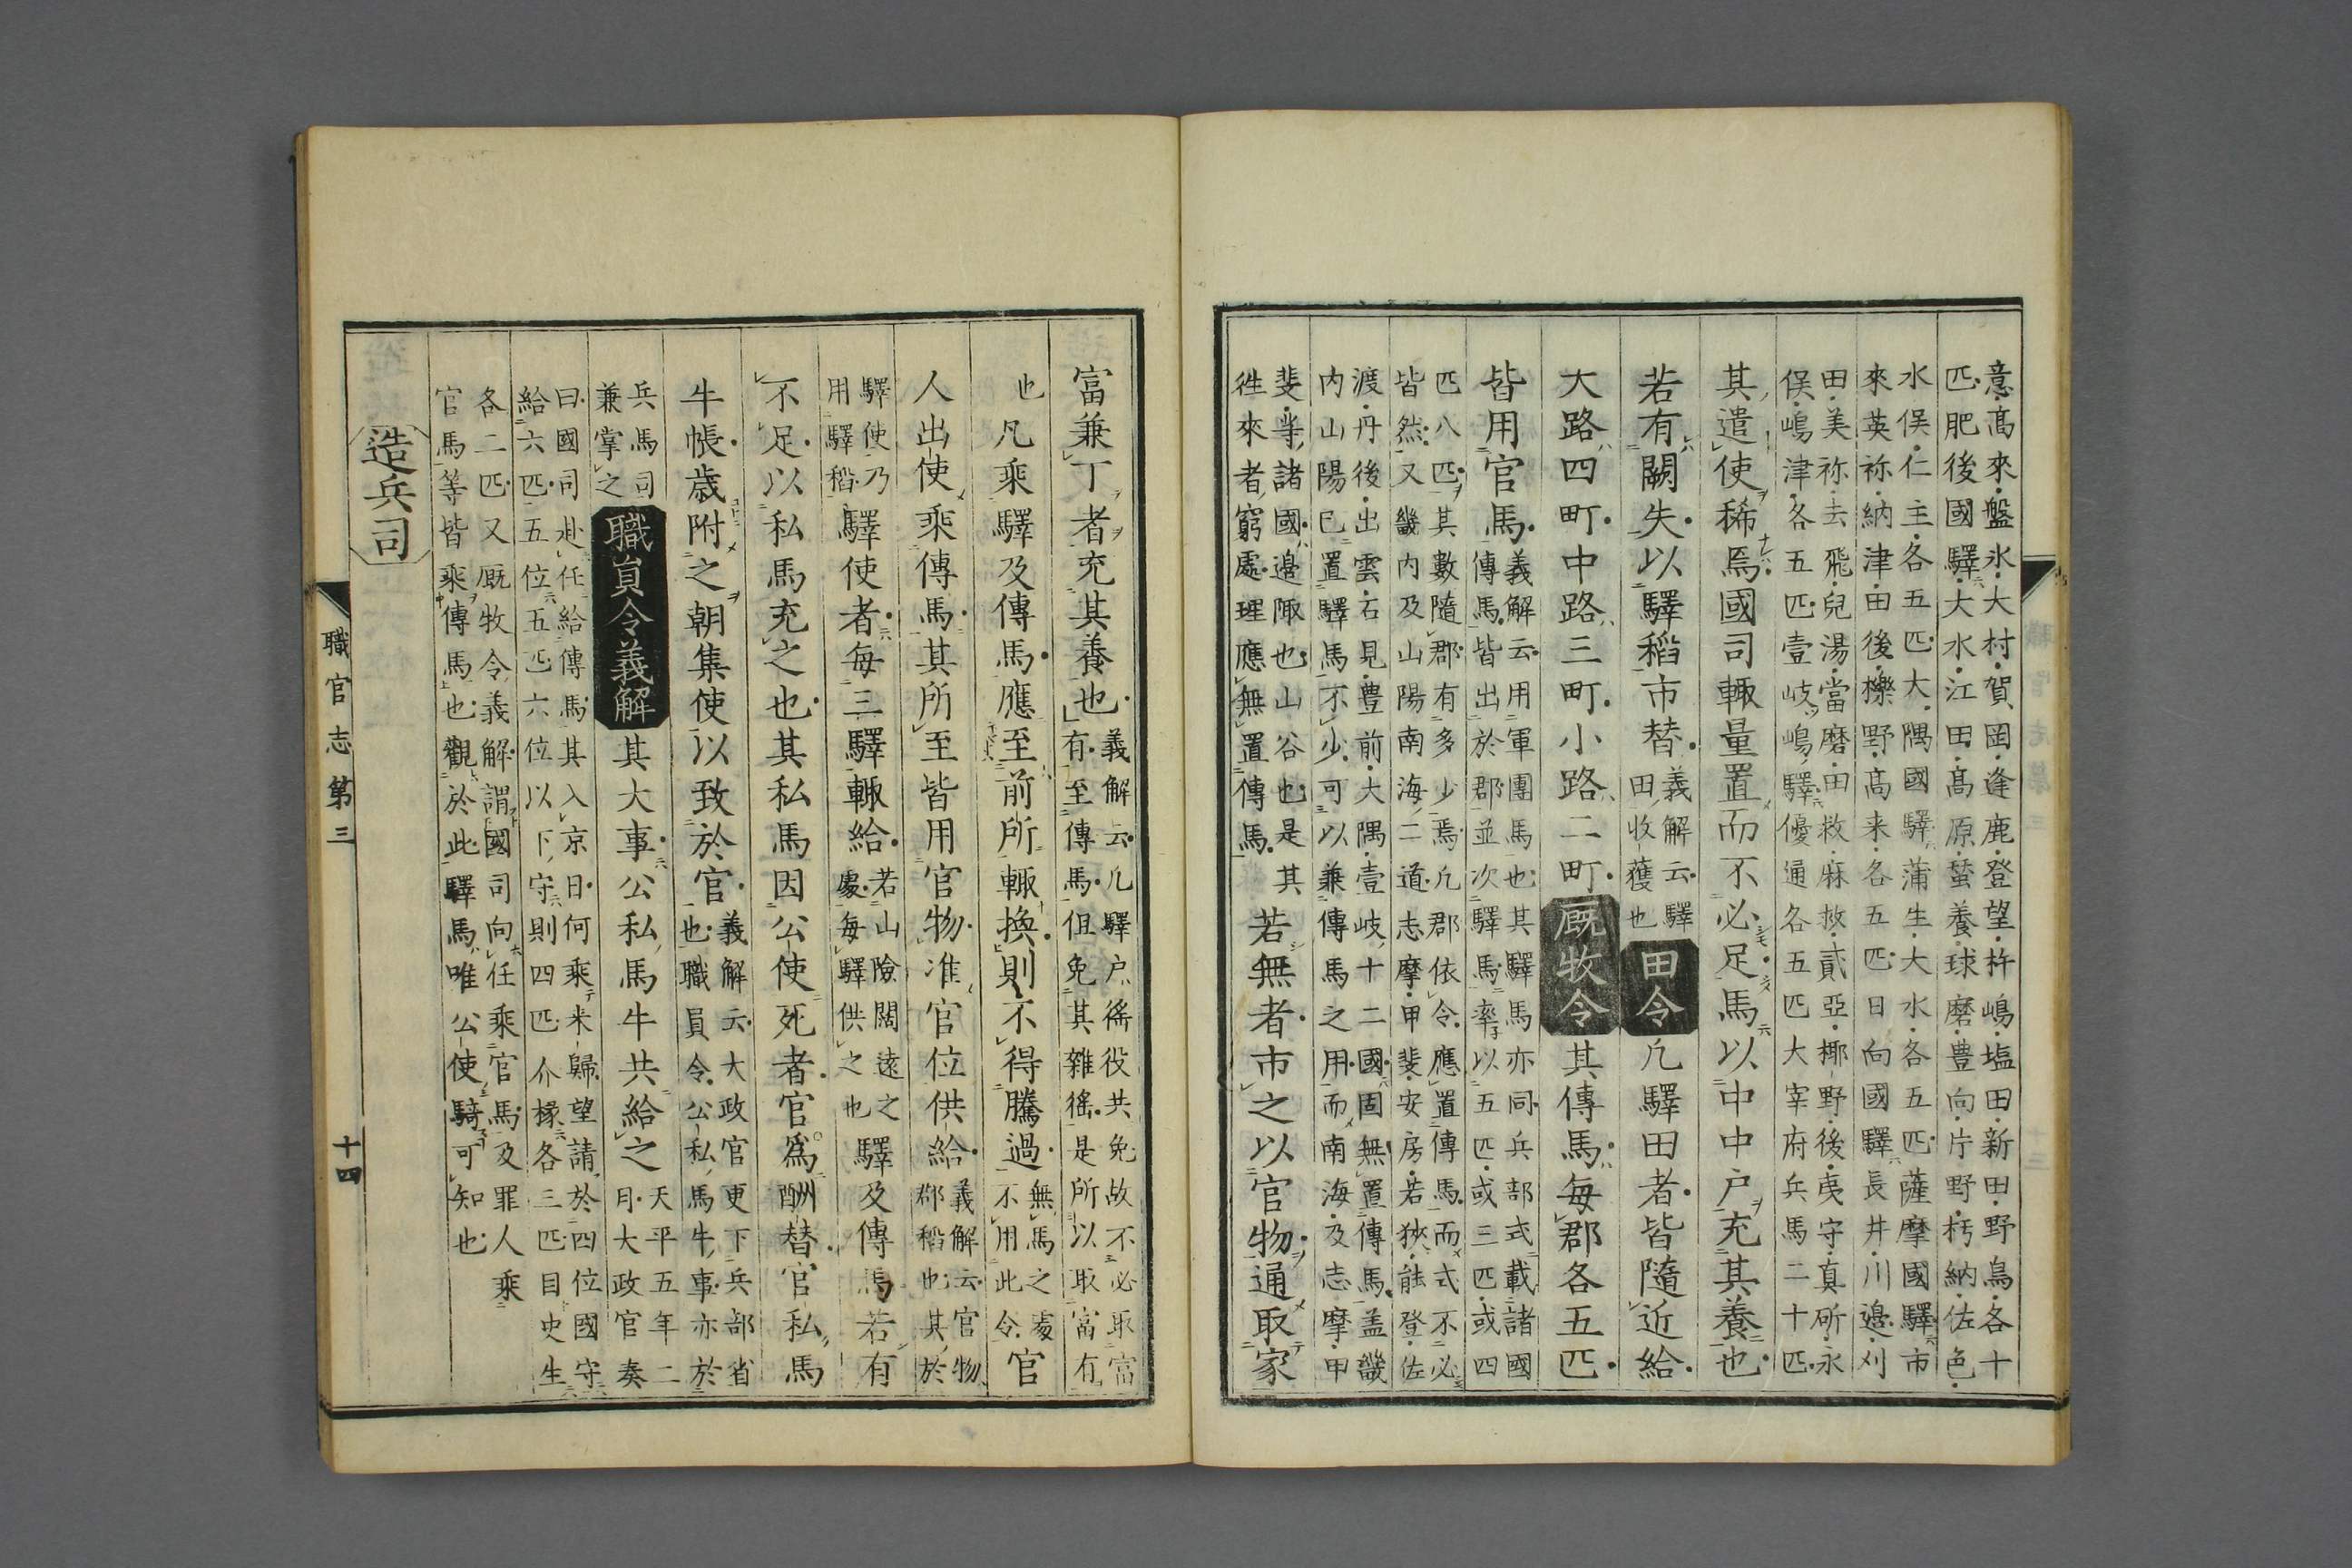 意・高來・盤氷・大村・賀・囶・逢鹿・登望・杵嶋・塩田・新田・野鳥・各十
匹・肥後國驛・大水・江田・髙原・蚕養・球磨・豊向・片野・朽納・佐色・
水俣・仁主・各五匹・大隅國驛・蒲生・大水・各五匹・薩摩國驛・市
來・英祢・納津・田後・櫟野・髙来・各五匹・日向國驛・長井・川邉・刈
田・美祢・去飛・兒湯・當磨・田・救麻・救貳・亞椰・野後・夷守・真斫・永
俣・嶋津・各五匹・壹岐嶋驛・優通・各五匹・大宰府兵馬二十匹・
其遣使稀焉・國司輙量置而不必足・馬以中中户充其養也・
若有闕失・以驛稻市替・
義解云・驛
田収獲也
田令
凡驛田者・皆隨近給・
大路四町・中路三町・小路二町・
厩牧令
其傳馬・每郡各五匹・
皆用官馬・
義解云・用軍團馬也・其驛馬亦同・兵部式載諸國
傳馬・皆出於郡・並次驛馬・率以五匹・或三匹・或四
匹八匹・其數隨郡・有多少焉・凡郡依令・應置傳馬・而式不必
皆然・又畿内及山陽南海二道・志摩・甲斐・安房・若狹・能登・佐
渡・丹後・出雲・石見・豊前・大隅・壹岐・十二國・固無置傳馬・盖畿
内山陽已置驛馬不少・可以兼傳馬之用・而南海・及志摩・甲
斐等・諸國・邉陬也・山谷也・是其
徃來者・窮處・理應無置傳馬・
若無者・市之以官物・通取家
富兼丁者・充其養也・
義解云・凡驛户徭役共免・故不必取富
有・至傳馬・但免其雜徭・是所以取富有
也
凡乘驛及傳馬・應至前所輙換・則不得騰過・
無馬之處
不用此令
官
人出使乘傳馬・其所至皆用官物・准官位供給・
義解云・官物
郡稻也・其於
驛使乃
用驛稻
驛使者・每三驛輙給・
若山險闊遠之
處・每驛供之也
驛及傳馬若有
不足・以私馬充之也・其私馬因公使死者・官爲酬替・官私馬
牛帳・歳附之朝集使以致於官・
義解云・大政官更下兵部省
也・職員令・公私馬牛事・亦於
兵馬司
兼掌之
職員令義解
其大事・公私馬牛共給之
天平五年二
月・大政官奏
曰・國司赴任給傳馬・其入京日・何乘来歸・望請・於四位國守
給六匹・五位五匹・六位以下・守則四匹・介掾各三匹・目史生
各二匹・又厩牧令義解・謂國司向任乘官馬・及罪人乘
官馬等・皆乘傳馬也・觀於此・驛馬・唯公使騎可知也・
造兵司
職官志第三
十四